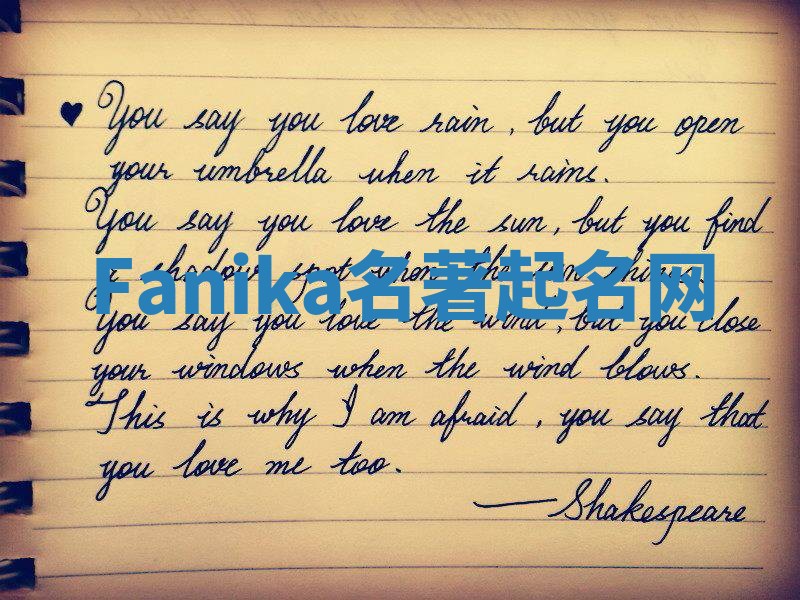 You say you love rain, but you open
your umbrella when it rains.
You say you love the sun, but you find
a shadow spot when the sun shines.
Fanika名著起名网
You say you love the wind, but you close
your windows when the wind blows.
This is why I am afraid, you say that
you love me too.
—Shakespeare